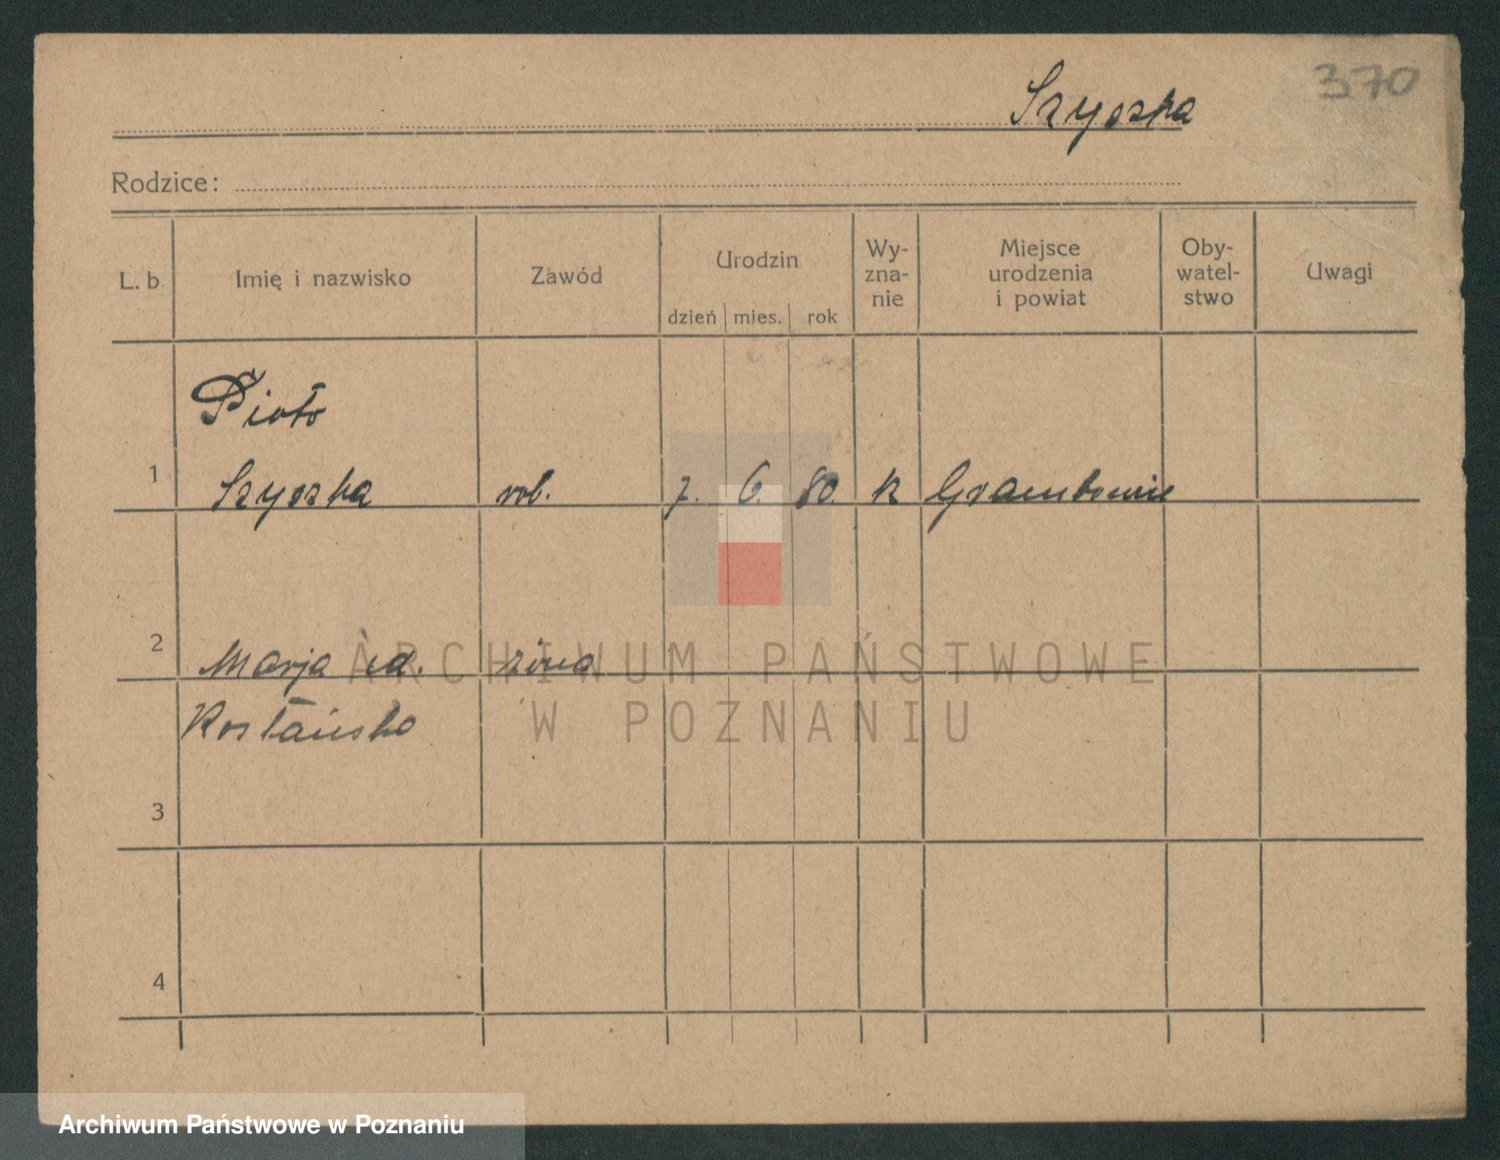 370
Szyszka
Rodzice:
L. b. Imię i nazwisko Zawód Urodzin dzień mies. rok Wy-zna-nie Miejsce urodzenia i powiat Oby-watel-stwo Uwagi
Piotr
1 Szyszka rob. 7. 6. 80. k Grambowie
2 Marja żona
3
4
ARCHIWUM PAŃSTWOWE
W POZNANIU
Archiwum Państwowe w Poznaniu